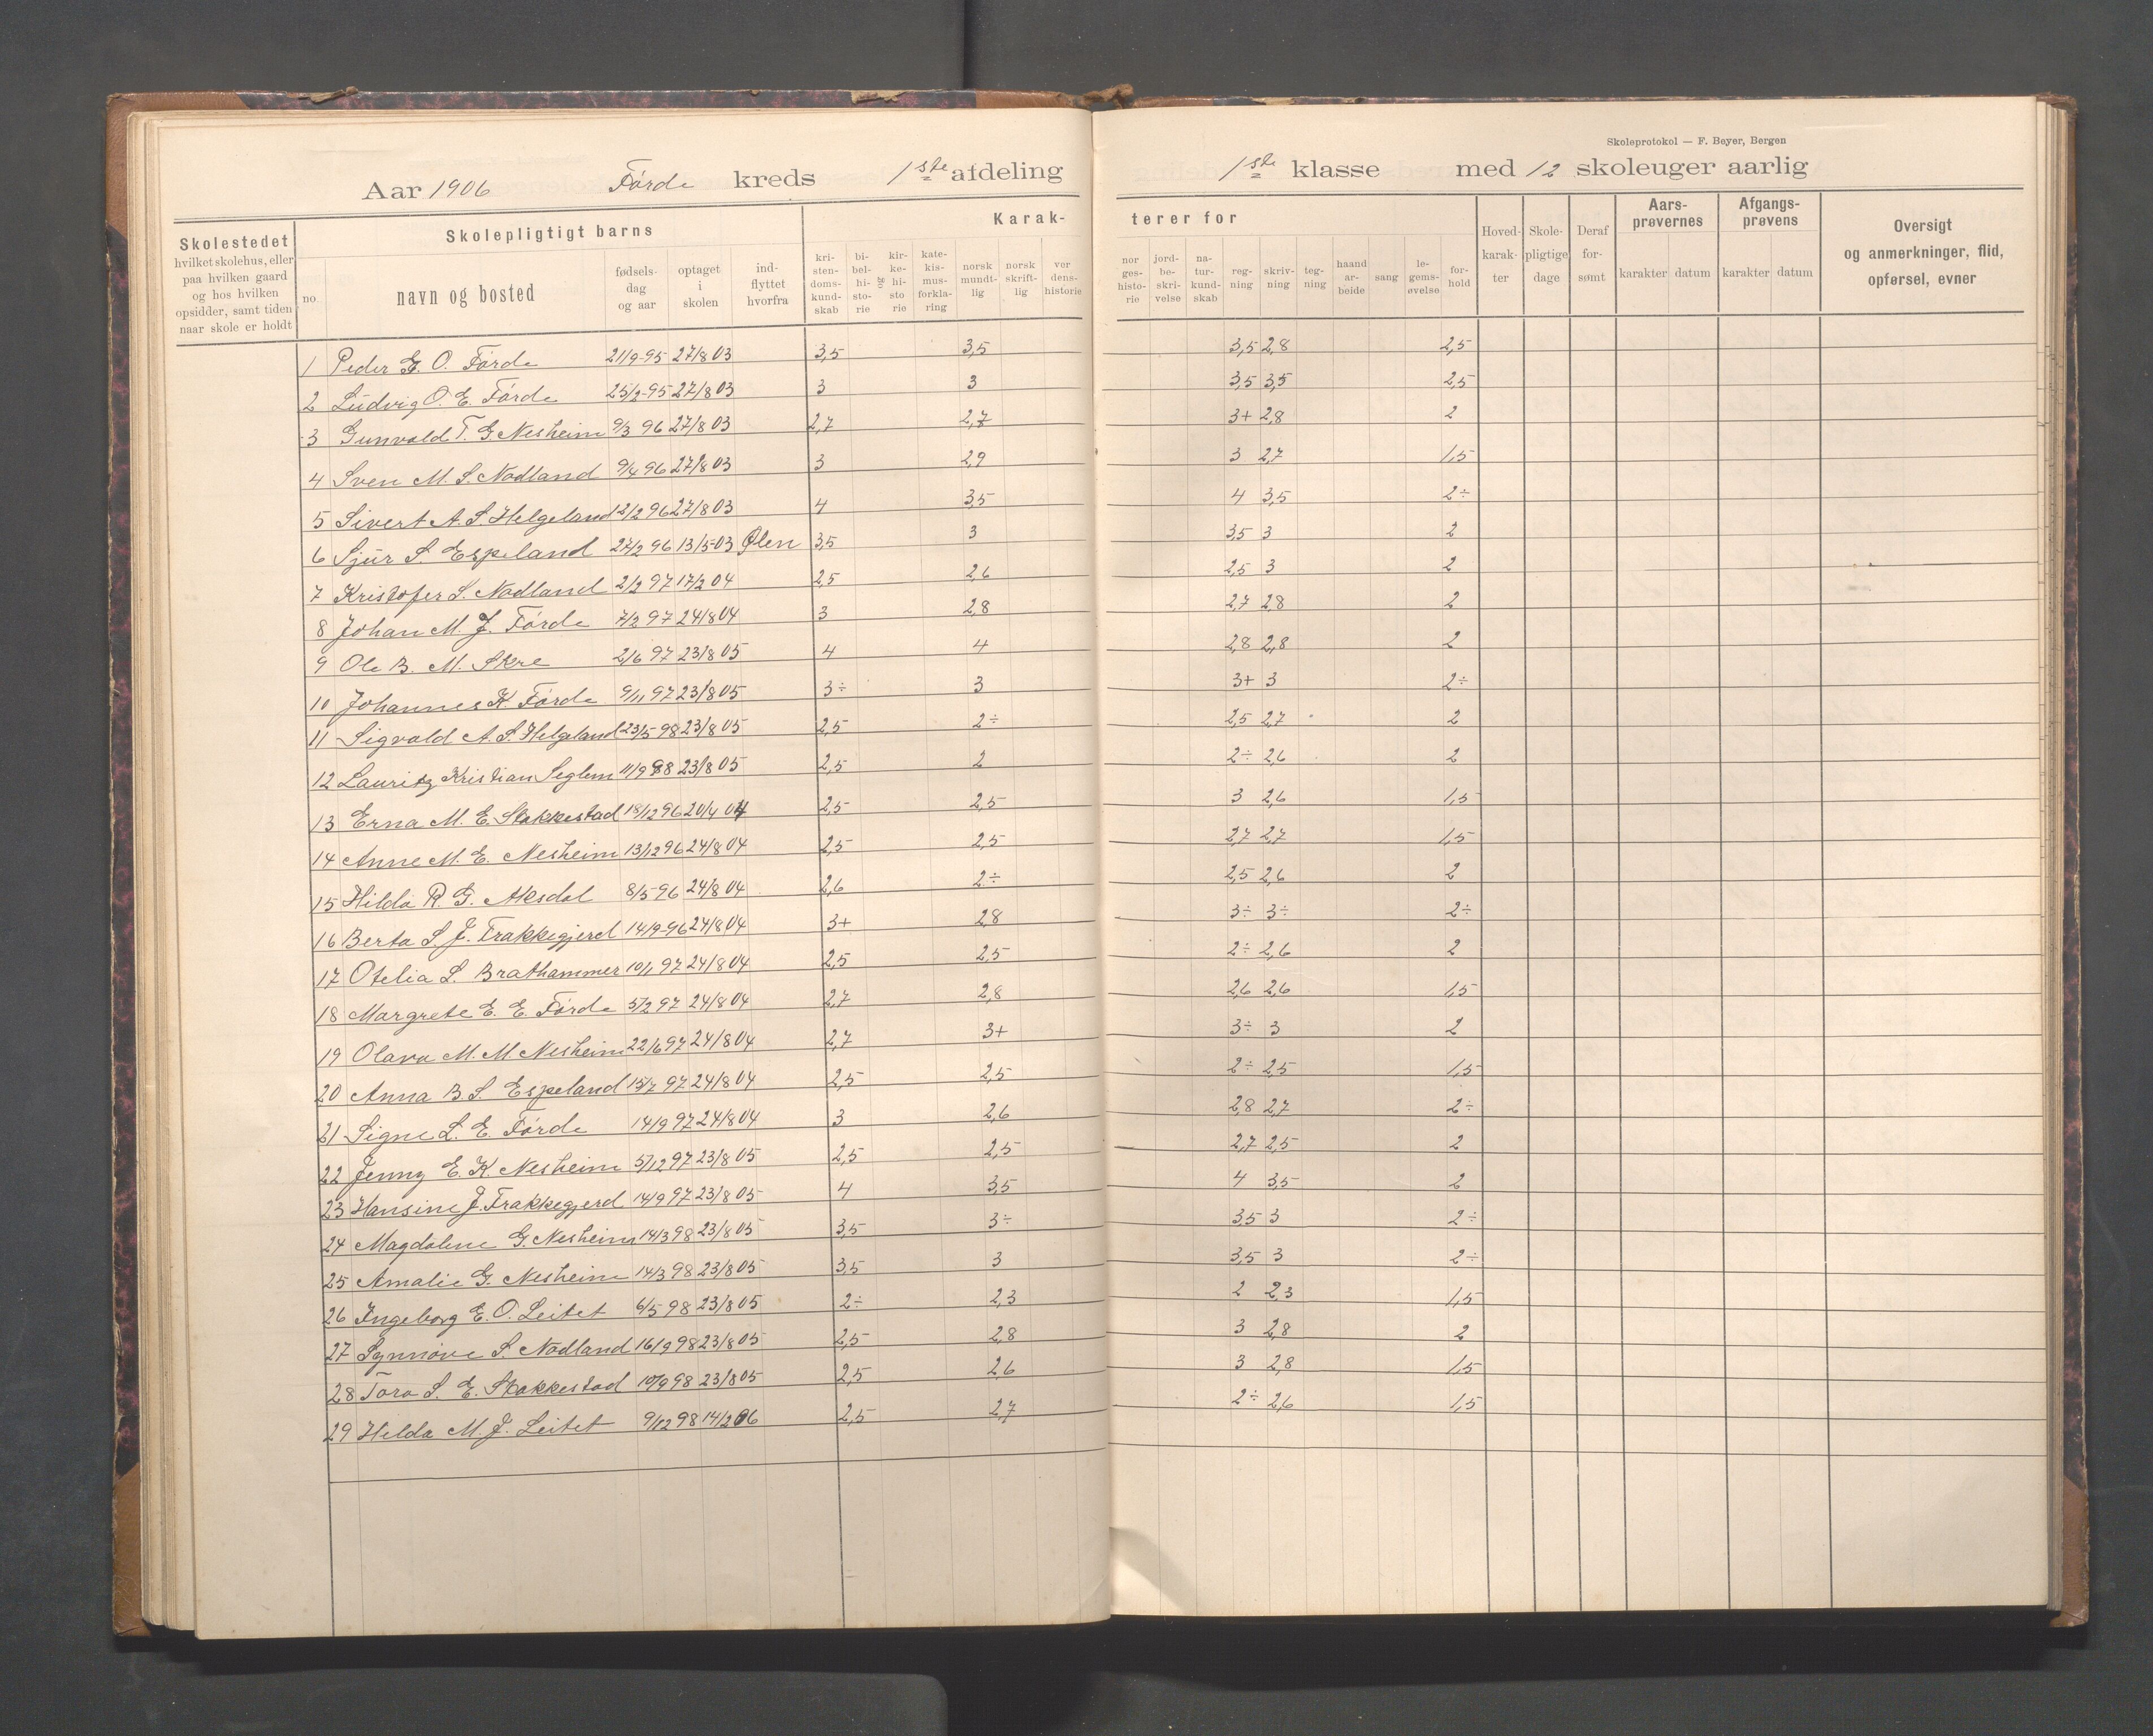 Skoleprotokol — F. Beyer, Bergen
Aar 1906 Førde kreds 1ste afdeling 1ste klasse med 12 skoleuger aarlig
Skolestedet hvilket skolehus, eller paa hvilken gaard og hos hvilken opsidder, samt tiden naar skole er holdt
Skolepligtigt barns
no. navn og bosted fødsels-dag og aar optaget i skolen ind-flyttet hvorfra
Karak-terer for
kri-sten-doms-kund-skab bi-bel-hi-sto-rie og kir-ke-hi-sto rie kate-kis-mus-forkla-ring norsk mundt-lig norsk skrift-lig ver dens-historie
nor ges-histo-rie jord-be-skri-velse na-tur-kund-skab reg-ning skriv-ning teg-ning haand ar-beide sang le-gems-øvelse for-hold
Hoved-karak-ter Skole-pligtige dage Deraf for-sømt
Aars-prøvernes karakter datum
Afgangs-prøvens karakter datum
Oversigt og anmerkninger, flid, opførsel, evner
1 Peder G. O. Førde 21/9-95 27/8 03 3,5 3,5 3,5 2,8 2,5
2 Ludvig O. E. Førde 25/2-95 27/8 03 3 3 3,5 3,5 2,5
3 Gunvald T. G Nesheim 9/3 96 27/8 03 2,7 2,7 3+ 2,8 2
4 Sven M. S. Nodland 9/4 96 27/8 03 3 2,9 3 2,7 1,5
5 Sivert A. S. Helgeland 12/2 96 27/8 03 4 3,5 4 3,5 2÷
6 Sjur S. Espeland 27/2 96 13/5-03 Ølen 3,5 3 3,5 3 2
7 Kristofer S. Nodland 2/2 97 17/2 04 2,5 2,6 2,5 3 2
8 Johan M. J. Førde 7/2 97 24/8 04 3 2,8 2,7 2,8 2
9 Ole B. M. Skre 2/6 97 23/8 05 4 4 2,8 2,8 2
10 Johannes K. Førde 9/11 97 23/8 05 3÷ 3 3+ 3 2÷
11 Sigvald A. S. Helgeland 23/5 98 23/8 05 2,5 2÷ 2,5 2,7 2
12 Lauritz Kristian Seglem 11/9 98 23/8 05 2,5 2 2÷ 2,6 2
13 Erna M. E. Stakkestad 18/12 96 20/4 04 2,5 2,5 3 2,6 1,5
14 Anne M. E. Nesheim 13/12 96 24/8 04 2,5 2,5 2,7 2,7 1,5
15 Hilda R. G. Aksdal 8/5-96 24/8 04 2,6 2÷ 2,5 2,6 2
16 Berta S. J. Frakkegjerd 14/9-96 24/8 04 3+ 2,8 3÷ 3÷ 2÷
17 Otelia L. Brathammer 10/1 97 24/8 04 2,5 2,5 2÷ 2,6 2
18 Margrete E. E. Førde 5/2 97 24/8 04 2,7 2,8 2,6 2,6 1,5
19 Olava M. M Nesheim 22/6 97 24/8 04 2,7 3+ 3÷ 3 2
20 Anna B. S. Espeland 15/7 97 24/8 04 2,5 2,5 2÷ 2,5 1,5
21 Signe L. E. Førde 14/9 97 24/8 04 3 2,6 2,8 2,7 2÷
22 Jenny E. K Nesheim 5/12 97 23/8 05 2,5 2,5 2,7 2,5 2
23 Hansine J. Frakkegjerd 14/9 97 23/8 05 4 3,5 4 3,5 2
24 Magdalene G. Nesheim 14/3 98 23/8 05 3,5 3÷ 3,5 3 2÷
25 Amalie G. Nesheim 14/3 98 23/8 05 3,5 3 3,5 3 2÷
26 Ingeborg E. O. Leitet 6/5 98 23/8 05 2÷ 2,3 2 2,3 1,5
27 Synnøve S. Nodland 16/9 98 23/8 05 2,5 2,8 3 2,8 2
28 Tora S. E. Stakkestad 10/9 98 23/8 05 2,5 2,6 3 2,8 1,5
29 Helda M. J. Leitet 9/12 98 14/2 06 2,5 2,7 2÷ 2,6 1,5